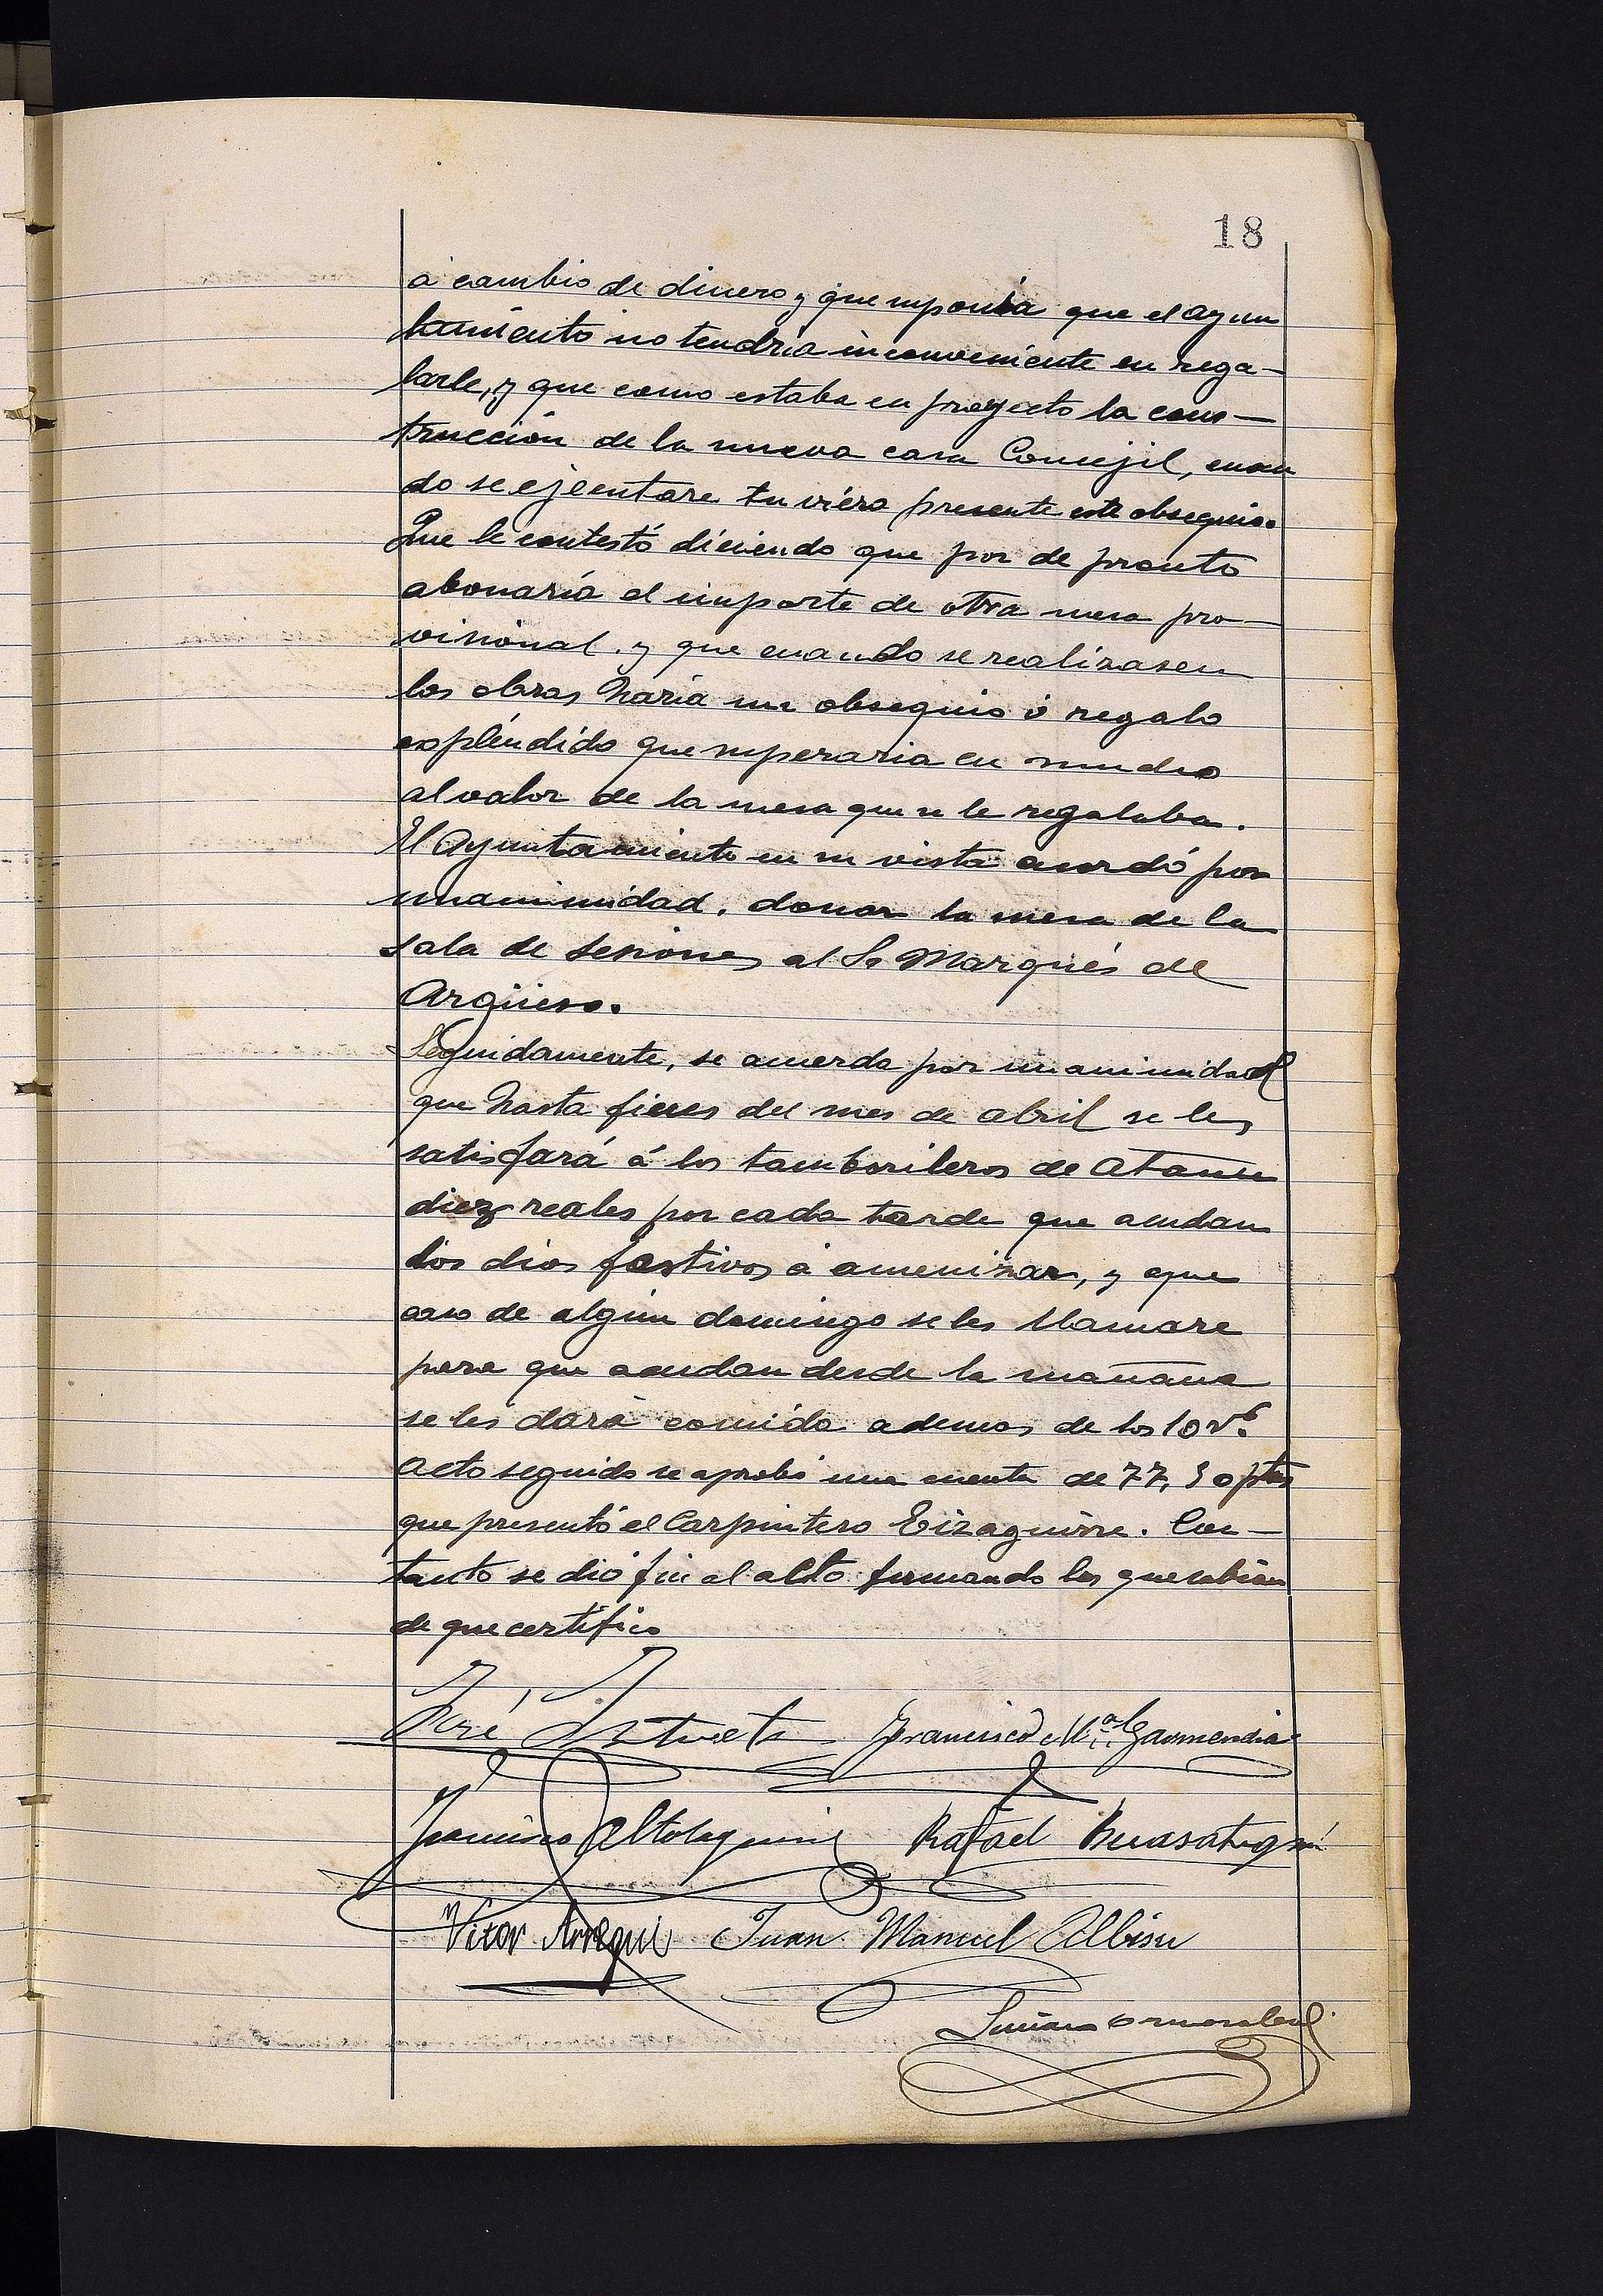 18
á cambio de dinero y que suponia que el ayun
tamiento no tendria inconveniente en rega-
larle, y que como estaba en proyecto la cons-
trucción de la nueva casa Concejil, cuan
do se ejecutare tuviera presente este obsequio.
Que le contestó diciendo que por de pronto
abonaría el importe de otra mesa pro-
visional. y que cuando se realizasen
las obras haria un obsequio ó regalo
espléndido que superaria en mucho
al valor de la mesa que se le regalaba.
El Ayuntamiento en su vista acordó por
unanimidad. donar la mesa de la
sala de sesiones al Sr Marqués de
Argüeso.
Seguidamente, se acuerda por unanimidad
que hasta fines del mes de abril se les
satisfará á los tamborileros de Ataun
diez reales por cada tarde que acudan
los dias festivos á amenizar, y que
caso de algún domingo se les llamare
para que acudan desde la mañana
se les dará comida ademas de los 10 rs.
Acto seguido se aprobó una cuenta de 77, 30 ptas
que presentó el Carpintero Eizaguirre. Con-
tanto se dió fin al acto firmando los que sabian
de que certifico
José Francisco Ma. Garmendia
Francisco Altolaguirre Rafael
Vitor Arregui Juan Manuel Albisu
Luciano